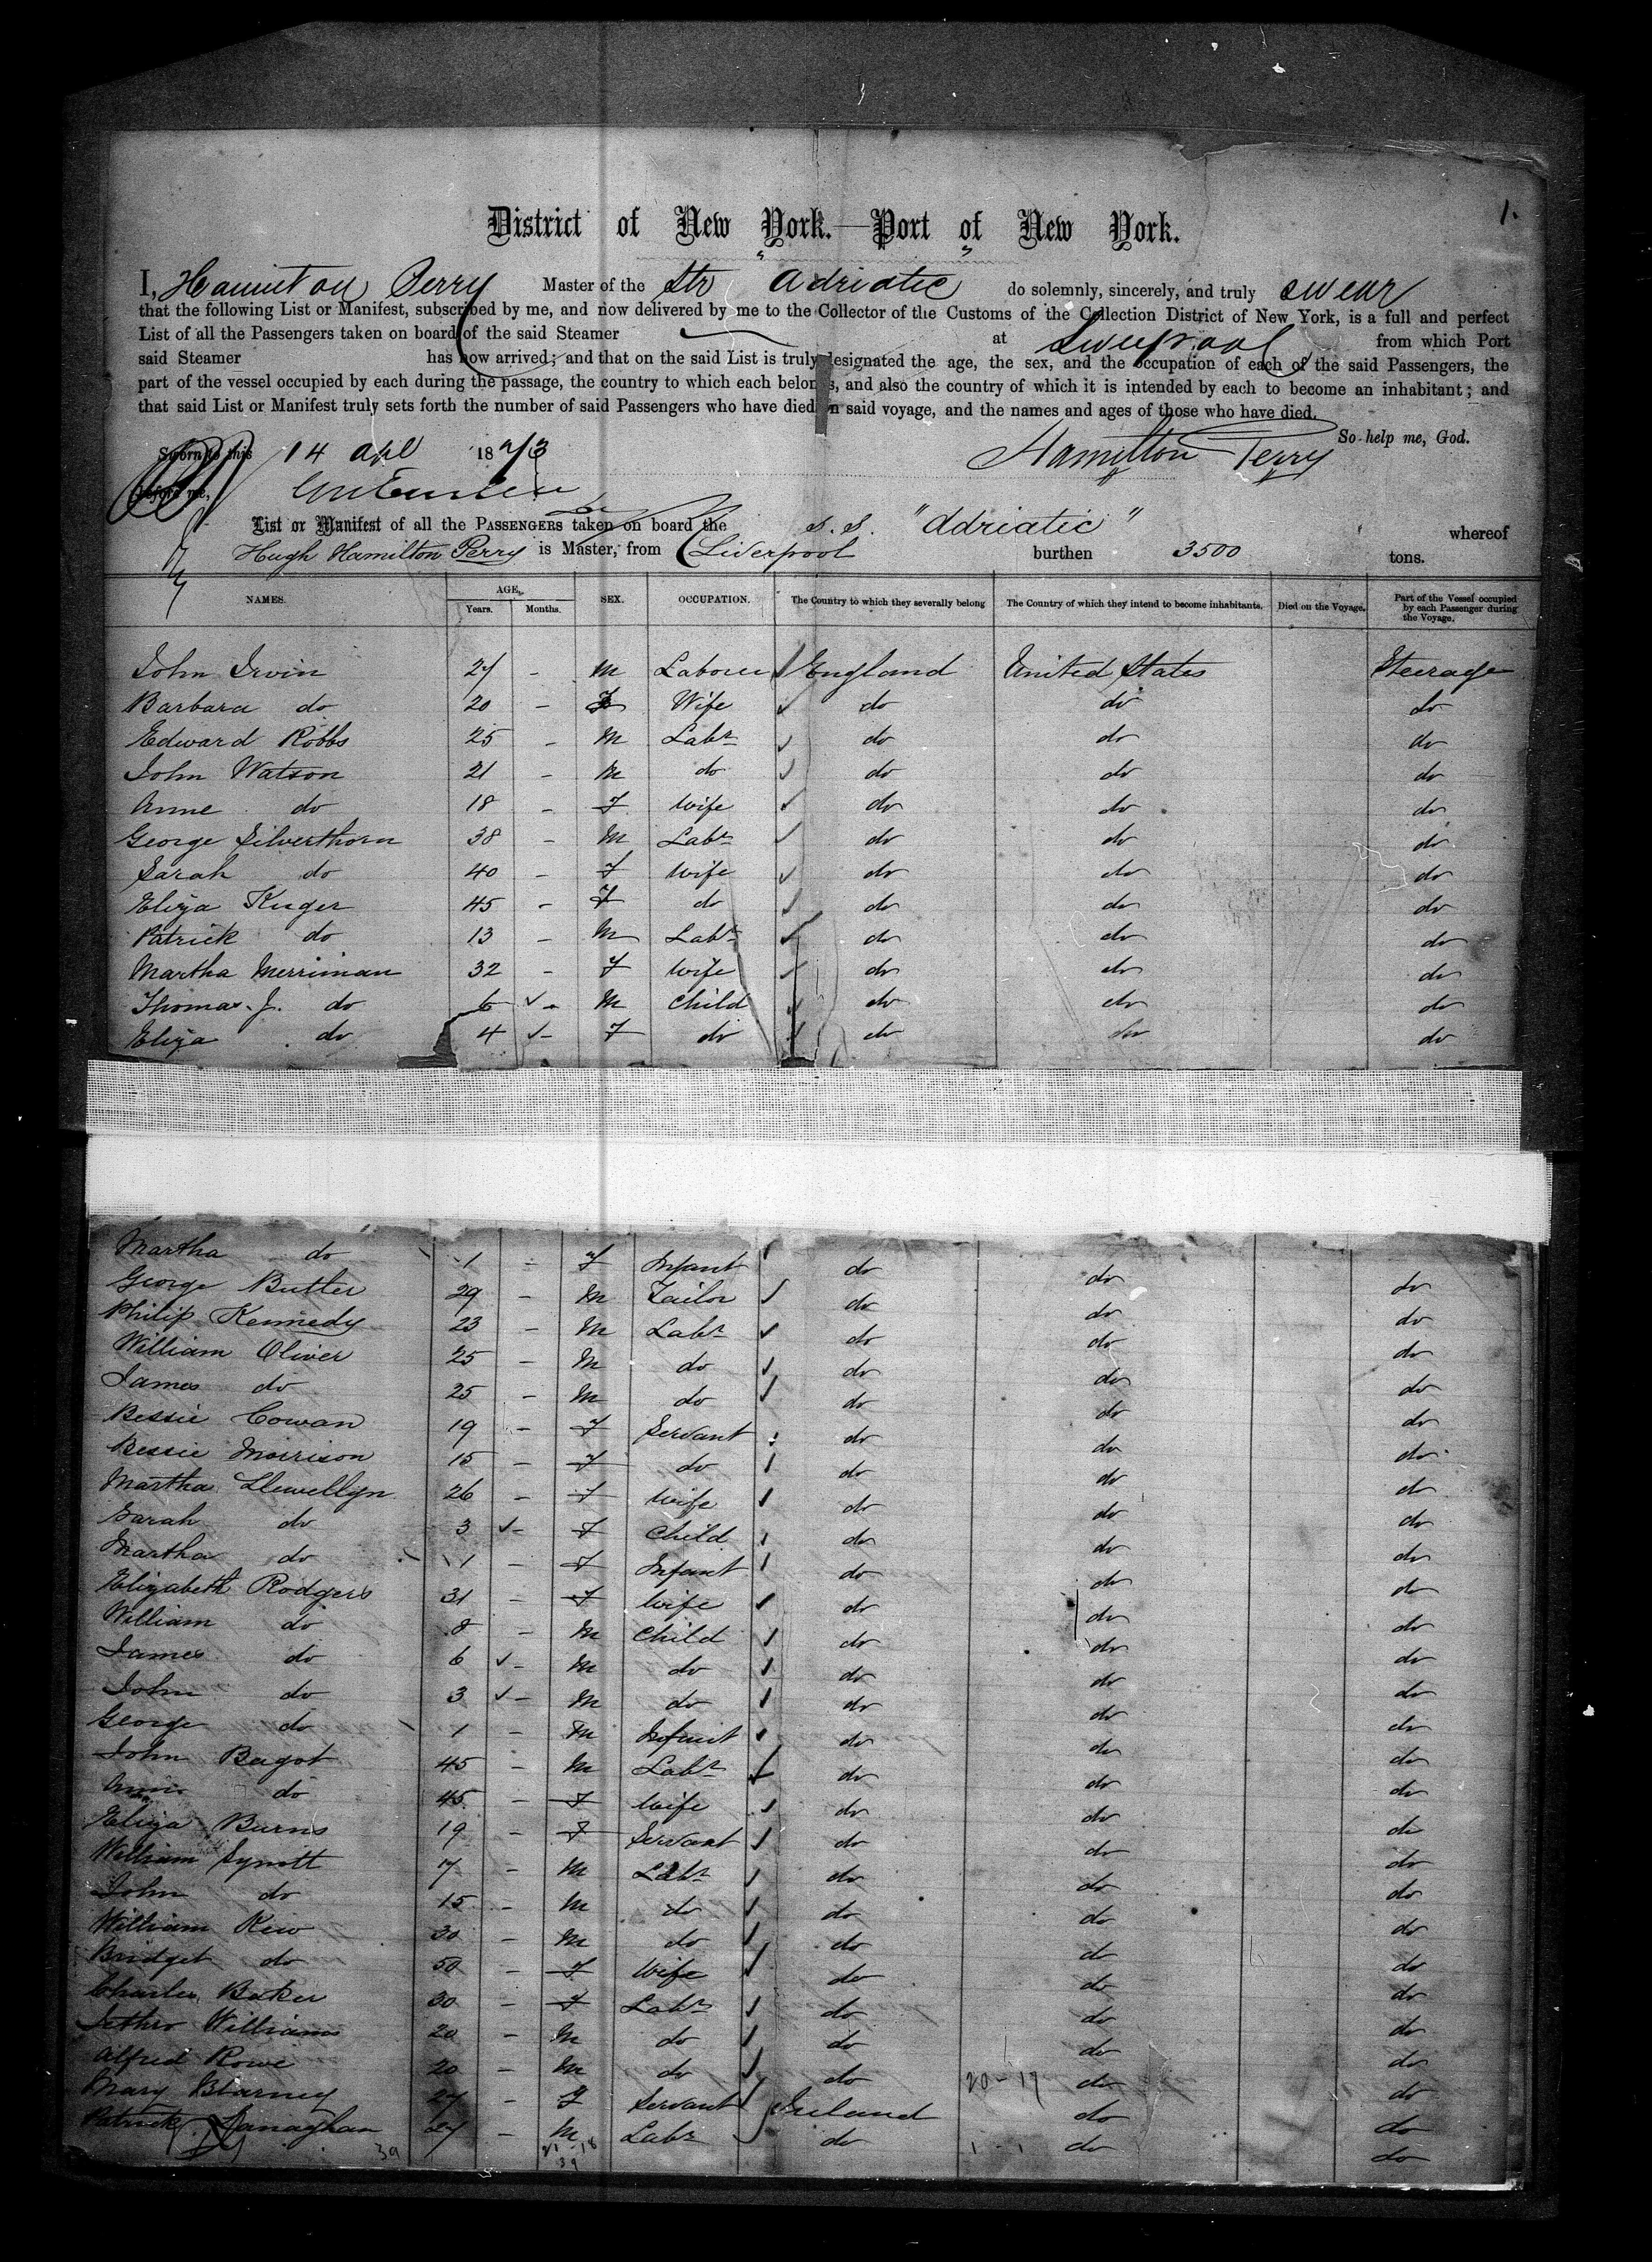 1.
District of New York.—Port of New York.
I, Hamilton Perry Master of the Str Adriatic do solemnly, sincerely, and truly swear
that the following List or Manifest, subscribed by me, and now delivered by me to the Collector of the Customs of the Collection District of New York, is a full and perfect
List of all the Passengers taken on board of the said Steamer at Liverpool from which Port
said Steamer has now arrived; and that on the said List is truly designated the age, the sex, and the occupation of each of the said Passengers, the
part of the vessel occupied by each during the passage, the country to which each belongs, and also the country of which it is intended by each to become an inhabitant; and
that said List or Manifest truly sets forth the number of said Passengers who have died on said voyage, and the names and ages of those who have died.
So help me, God.
Sworn to this 14 Apl 1873 Hamilton Perry
before me,
List or Manifest of all the PASSENGERS taken on board the S.S. "Adriatic" whereof
Hugh Hamilton Perry is Master, from Liverpool burthen 3500 tons.
NAMES. AGE. Years. Months. SEX. OCCUPATION. The Country to which they severally belong The Country of which they intend to become inhabitants. Died on the Voyage. Part of the Vessel occupied by each Passenger during the Voyage.
John Irvin 27 - M Laborer England United States Steerage
Barbara do 20 - F Wife do do do
Edward Robbs 25 - M Labr do do do
John Watson 21 - M do do do do
Anne do 18 - F Wife do do do
George Silverthorn 38 - M Labr do do do
Sarah do 40 - F Wife do do do
Eliza Kuger 45 - F do do do do
Patrick do 13 - M Labr do do do
Martha Merriman 32 - F Wife do do do
Thomas J. do 6 - M Child do do do
Eliza do 4 - F do do do do
Martha do 1 - F Infant do do do
George Butler 29 - M Tailor do do do
Philip Kennedy 23 - M Labr do do do
William Oliver 25 - M do do do do
James do 25 - M do do do do
Bessie Cowan 19 - F Servant do do do
Bessie Morrison 15 - F do do do do
Martha Llewellyn 26 - F Wife do do do
Sarah do 3 - F Child do do do
Martha do 1 - F Infant do do do
Elizabeth Rodgers 31 - F Wife do do do
William do 8 - M Child do do do
James do 6 - M do do do do
John do 3 - M do do do do
George do 1 - M Infant do do do
John Bagot 45 - M Labr do do do
Ann do 45 - F Wife do do do
Eliza Burns 19 - F Servant do do do
William Synott 17 - M Labr do do do
John do 15 - M do do do do
William Kew 30 - M do do do do
Bridget do 50 - F Wife do do do
Charles Baker 30 - F Labr do do do
Jethro Williams 20 - M do do do do
Alfred Rowe 20 - M do do 20-19 do do
Mary Blarney 27 - F Servant Ireland do do
Patrick Lanaghan 27 - M Labr do 1-1 do do
39 21-18
39